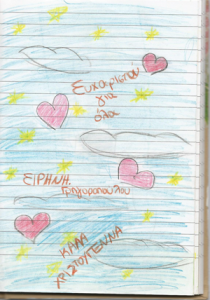 Ευχαρίστου
για
όλα
ΕΙΡΗΝΗ
Γρηγοροπούλου
ΚΑΛΑ
ΧΡΙΣΤΟΥΓΕΝΝΑ